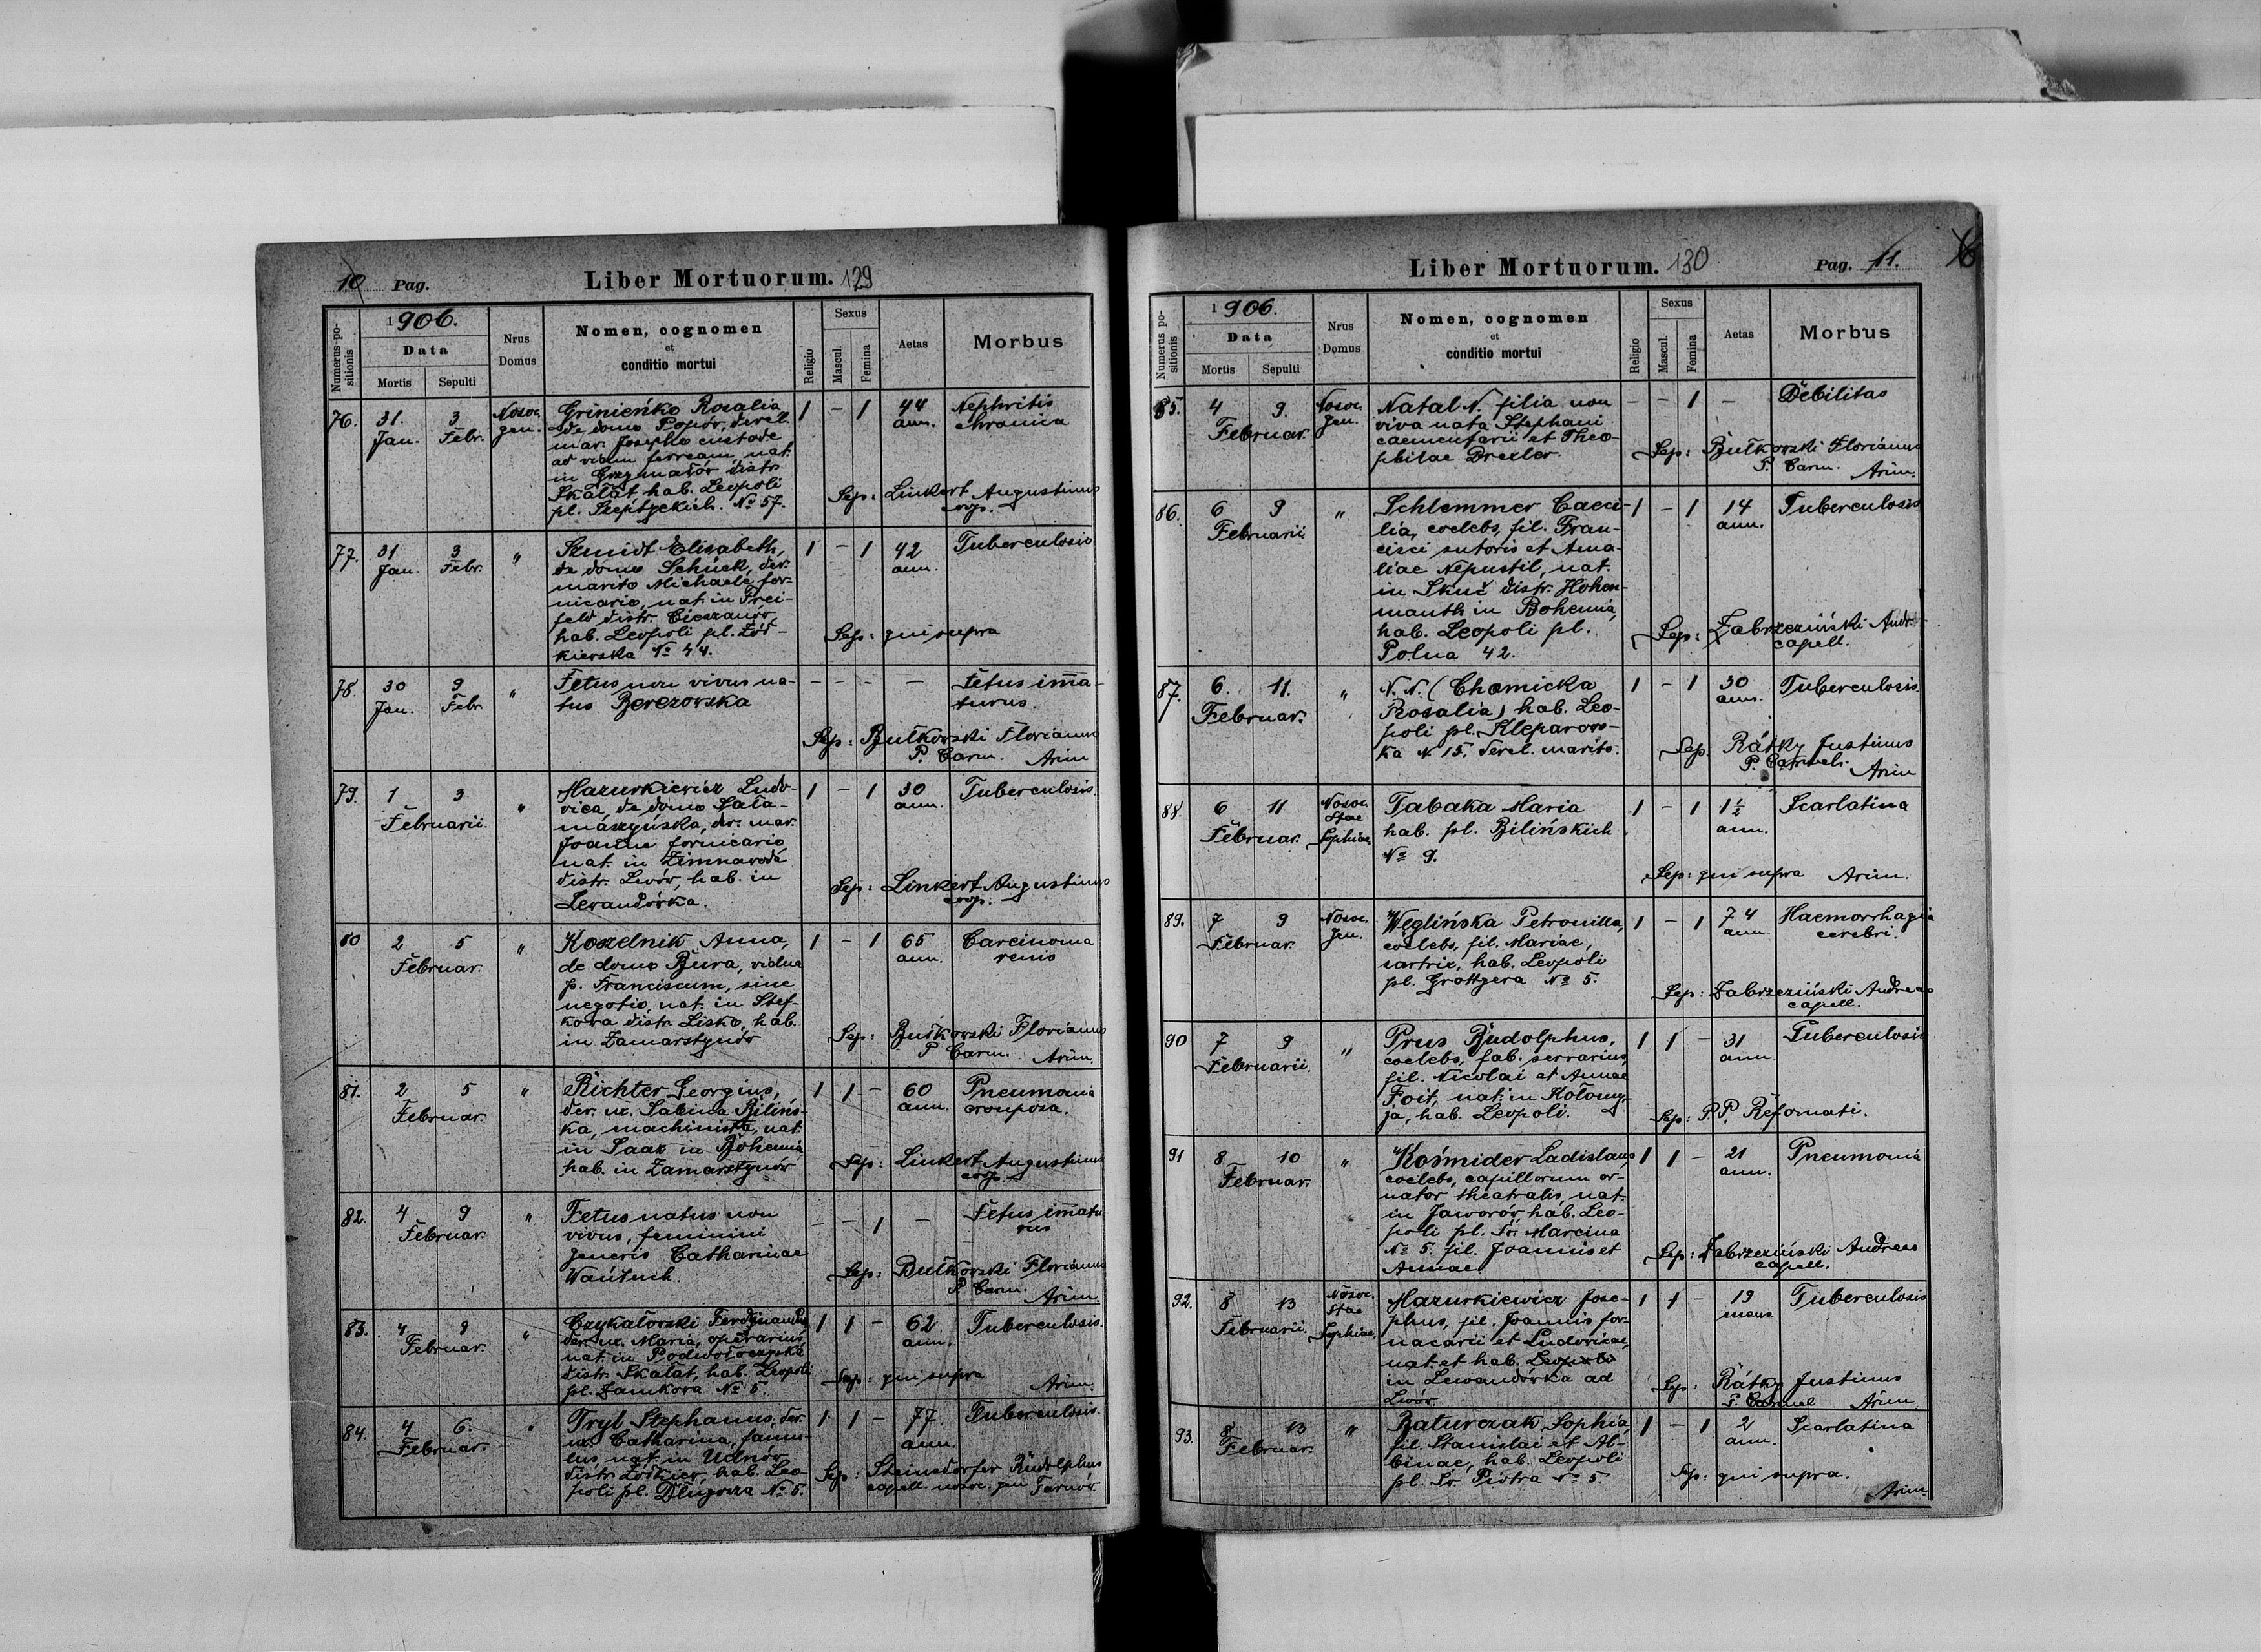 10 Pag.
Liber Mortuorum. 129
Numerus positionis
1906.
Data
Mortis
Sepulti
Nrus Domus
Nomen, cognomen
et
conditio mortui
Religio
Sexus
Mascul.
Femina
Aetas
Morbus
76. 31. Jan. 3 Febr. Nosoc. gen.
Grinieńko Rosalia 1 - 1 44 ann. Nephritis chronica
de domo Popór, derel.
mar. Josepho custode
ad viam ferream nat.
in Grzymałów distr.
Skałat hab. Leopoli
pl. Szeptyckich. No 57.
Sep: Linkert Augustinus
coop.
77. 31 Jan. 3 Febr. "
Szmidt Elisabeth, 1 - 1 42 ann. Tuberculosis
de domo Schück, der.
marito Michaele for-
nicario, nat. in Frei-
feld distr. Cieszanów,
hab. Leopoli pl. Żół-
kiewska No 44.
Sep: qui supra
78. 30 Jan. 9 Febr. "
Fetus non vivus na- - - - - Fetus imma-
tus Berezowska turus.
Sep: Bułkowski Florianus
P. Carm. Arim
79. 1 3 Februarii. "
Mazurkiewicz Ludo- 1 - 1 30 ann. Tuberculosis.
vica, de domo Sała-
maszyńska, der. mar.
Joanne fornicario,
nat. in Zimnawoda
distr. Lwów, hab. in
Lewandówka.
Sep: Linkert Augustinus
coop.
80 2 5 Februar. "
Koszelnik Anna, 1 - 1 65 ann. Carcinoma renis
de domo Bura, vidua
p. Franciscum, sine
negotio, nat. in Stef-
kowa distr. Lisko, hab.
in Zamarstynów
Sep: Bułkowski Florianus
P Carm. Arim.
81. 2 5 Februar. "
Richter Georgius, 1 1 - 60 ann. Pneumonia crouposa.
der. ux. Sabina Bilińs-
ka, machinista, nat.
in Saaz in Bohemia
hab. in Zamarstynów
Sep: Linkert Augustinus
coop.
82. 4 9 Februar. "
Fetus natus non - - 1 - Fetus immatu-
vivus, feminini rus
generis Catharinae
Wańtuch.
Sep: Bułkowski Florianus
P. Carm. Arim.
83. 4 9 Februar. "
Czykałowski Ferdinandus 1 1 - 62 ann. Tuberculosis.
der. ux. Maria, operarius,
nat. in Podwołoczyska
distr. Skałat, hab. Leopoli
pl. Zamkowa No 5.
Sep: qui supra Arim.
84. 4 6. Februar. "
Tryl Stephanus, der. 1 1 - 77. ann. Tuberculosis.
ux. Catharina, famu-
lus, nat. in Udnów
distr. Żółkiew, hab. Leo-
poli pl. Długosza No 5.
Sep: Steinsdorfer Rudolphus
capell. nosoc. gen Tarnów
Liber Mortuorum. 130
Pag. 11.
Numerus positionis
1906.
Data
Mortis
Sepulti
Nrus Domus
Nomen, cognomen
et
conditio mortui
Religio
Sexus
Mascul.
Femina
Aetas
Morbus
85. 4 9. Februar. Nosoc. Gen.
Natal N. filia non - - 1 - Debilitas
viva nata Stephani
caementarii et Theo-
philae Drexler.
Sep: Bułkowski Florianus
P. Carm. Arim.
86. 6 9 Februarii "
Schlemmer Caeci- 1 - 1 14 ann. Tuberculosis
lia, coelebs, fil. Fran-
cisci sutoris et Ama-
liae Nepustil, nat.
in Skuč distr. Hohen-
mauth in Bohemia,
hab. Leopoli pl.
Polna 42.
Sep: Zabrzeziński Andr.
capell.
87. 6. 11. Februar. "
N. N. (Chomicka 1 - 1 30 ann. Tuberculosis.
Rosalia) hab. Leo-
poli pl. Kleparows-
ka N. 15. derel. marito.
Sep. Rátky Justinus
P. Carmel. Arim
88. 6 11 Februar. Nosoc. Stae Sophiae
Tabaka Maria 1 - 1 1½ ann. Scarlatina
hab. pl. Bilińskich
No 9.
Sep: qui supra Arim.
89. 7 9 Februar. Nosoc. Gen.
Węglińska Petronilla, 1 - 1 74 ann. Haemorrhagia
coelebs, fil. Mariae, cerebri.
sartrix, hab. Leopoli
pl. Grottgera No 5.
Sep: Zabrzeziński Andreas
capell.
90 7 9 Februarii. "
Prus Rudolphus, 1 1 - 31 ann. Tuberculosis
coelebs, fab. serrarius,
fil. Nicolai et Annae
Foit, nat. in Kołomy-
ja, hab. Leopoli.
Sep: P.P. Refomati.
91 8 10 Februar. "
Kośmider Ladislaus, 1 1 - 21 ann. Pneumonia
coelebs, capillorum or-
nator theatralis, nat.
in Jaworów, hab. Leo-
poli pl. Św. Marcina
No 5. fil. Joannis et
Annae.
Sep: Zabrzeziński Andreas
capell.
92. 8 13 Februarii. Nosoc. Stae Sophiae.
Mazurkiewicz Jose- 1 1 - 19 mens. Tuberculosis
phus, fil. Joannis for-
nacarii et Ludovicae,
nat. et hab. Leopoli
in Lewandówka ad
Lwów.
Sep: Rátky Justinus
P. Carmel Arim.
93. 8 13 Februar. "
Baturczak Sophia, 1 - 1 2 ann. Scarlatina
fil. Stanislai et Al-
binae, hab. Leopoli
pl. Św. Piotra No 5.
Sep: qui supra.
Arim.